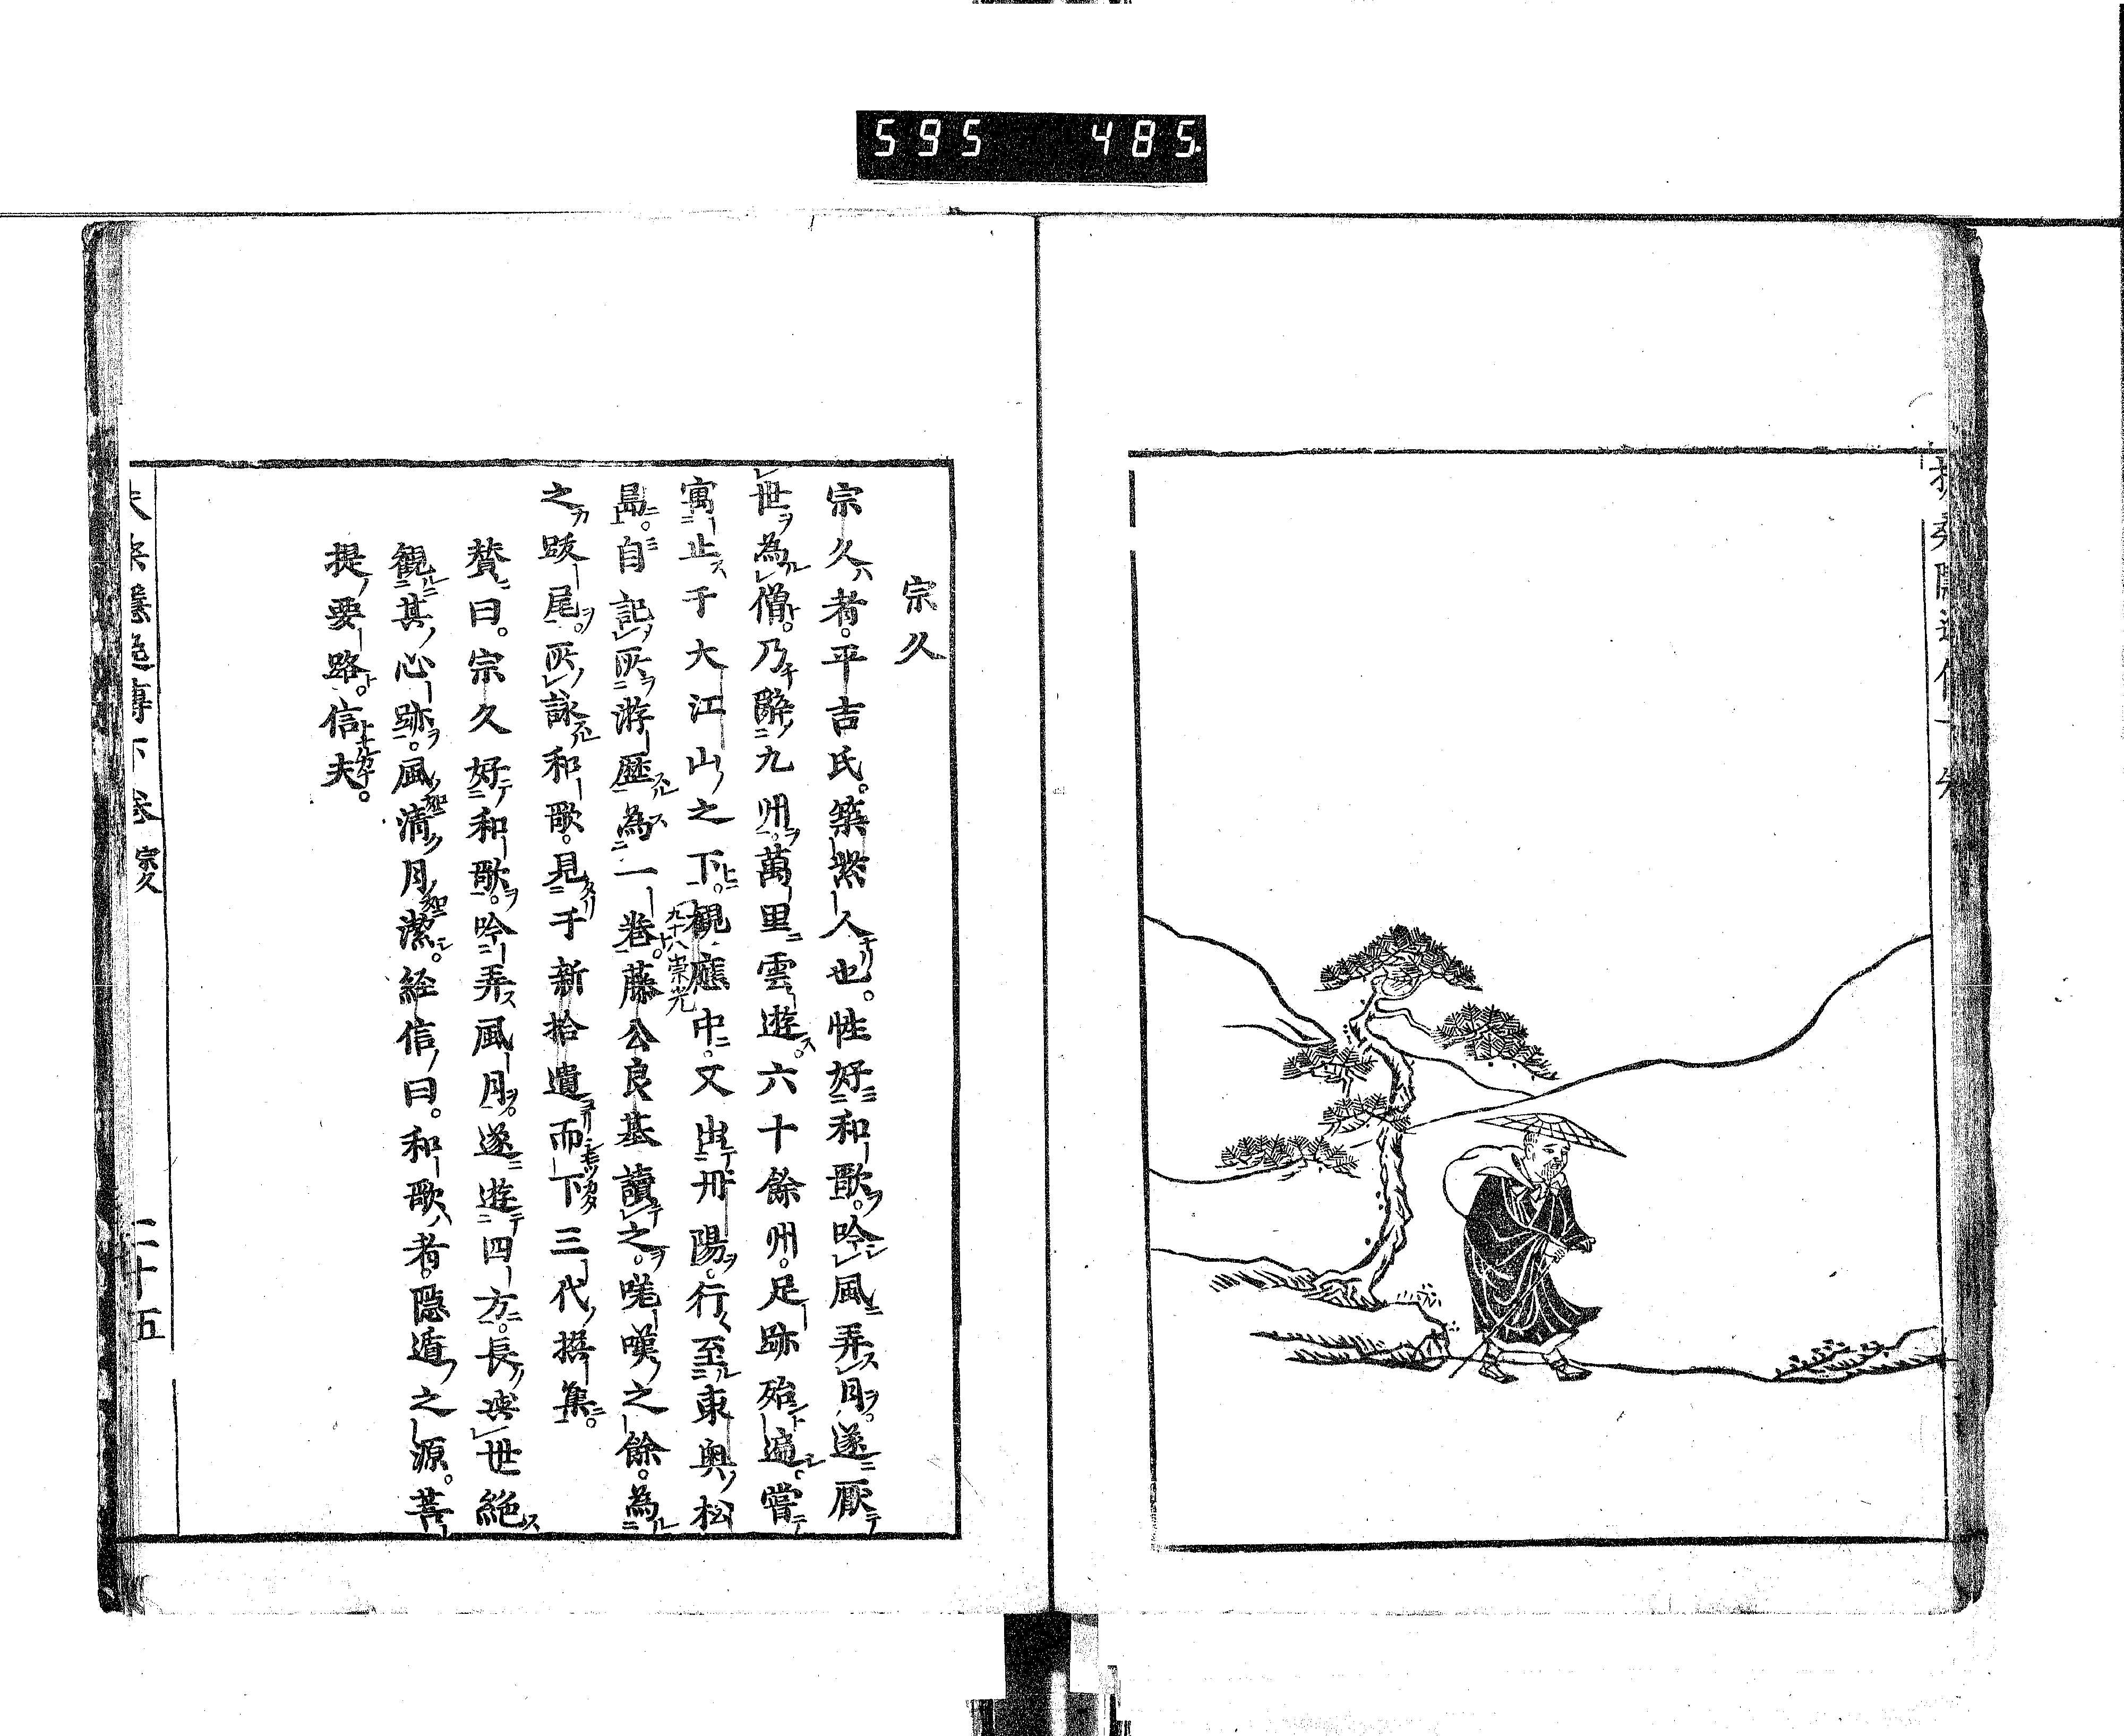 595 485
宗久
宗久者。平吉氏。築紫人也。性好和歌。吟風弄月。遂厭
世為僧。乃辭九州。萬里雲遊。六十餘州。足跡殆遍。嘗
寓止于大江山之下。観應中。又出丹陽。行至東奥松
九十八崇光
嶌。自記所游歴為一巻。藤公良基讀之。嗟嘆之餘。為
之跋尾。所詠和歌。見于新拾遺而下三代撰集。
賛曰。宗久好和歌。吟弄風月。遂遊四方。長與世絶
觀其心跡。風清月潔。経信曰。和歌者。隠遁之源。菩
提要路。信夫。
扶桑隱逸傳下巻 宗久 二十五